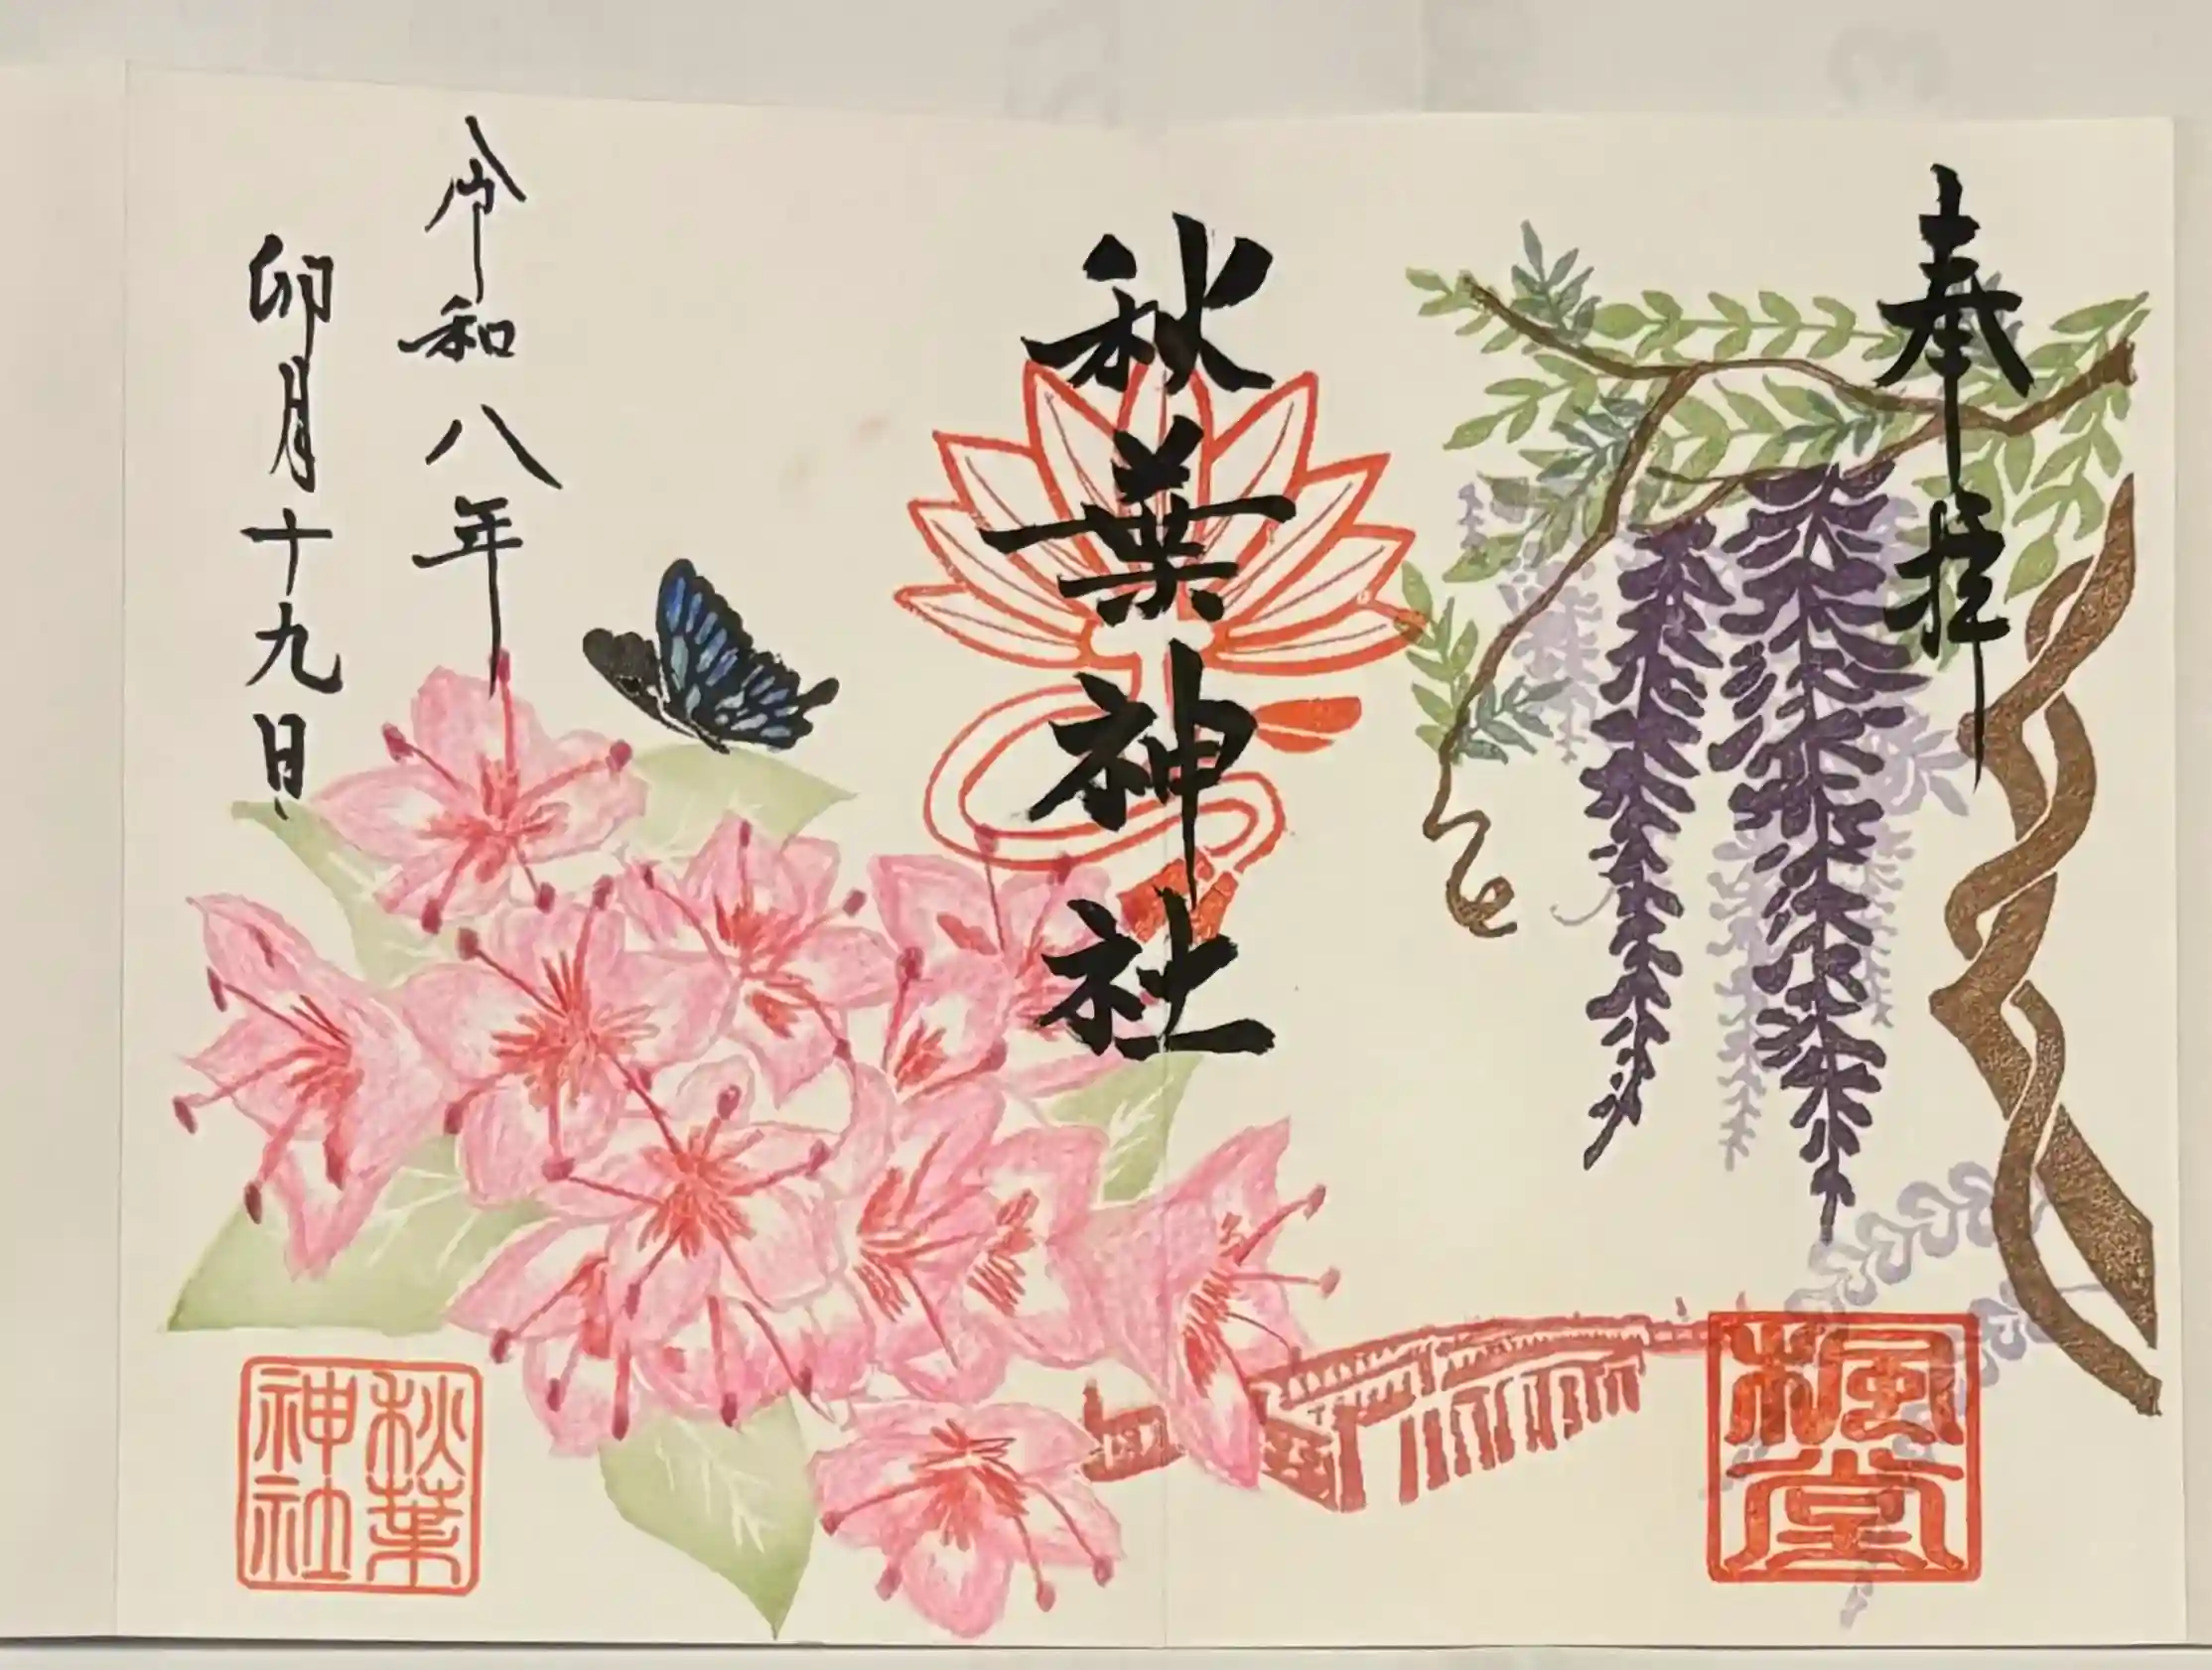 奉拝
秋葉神社
令和八年
卯月十九日
楓堂
秋葉
神社